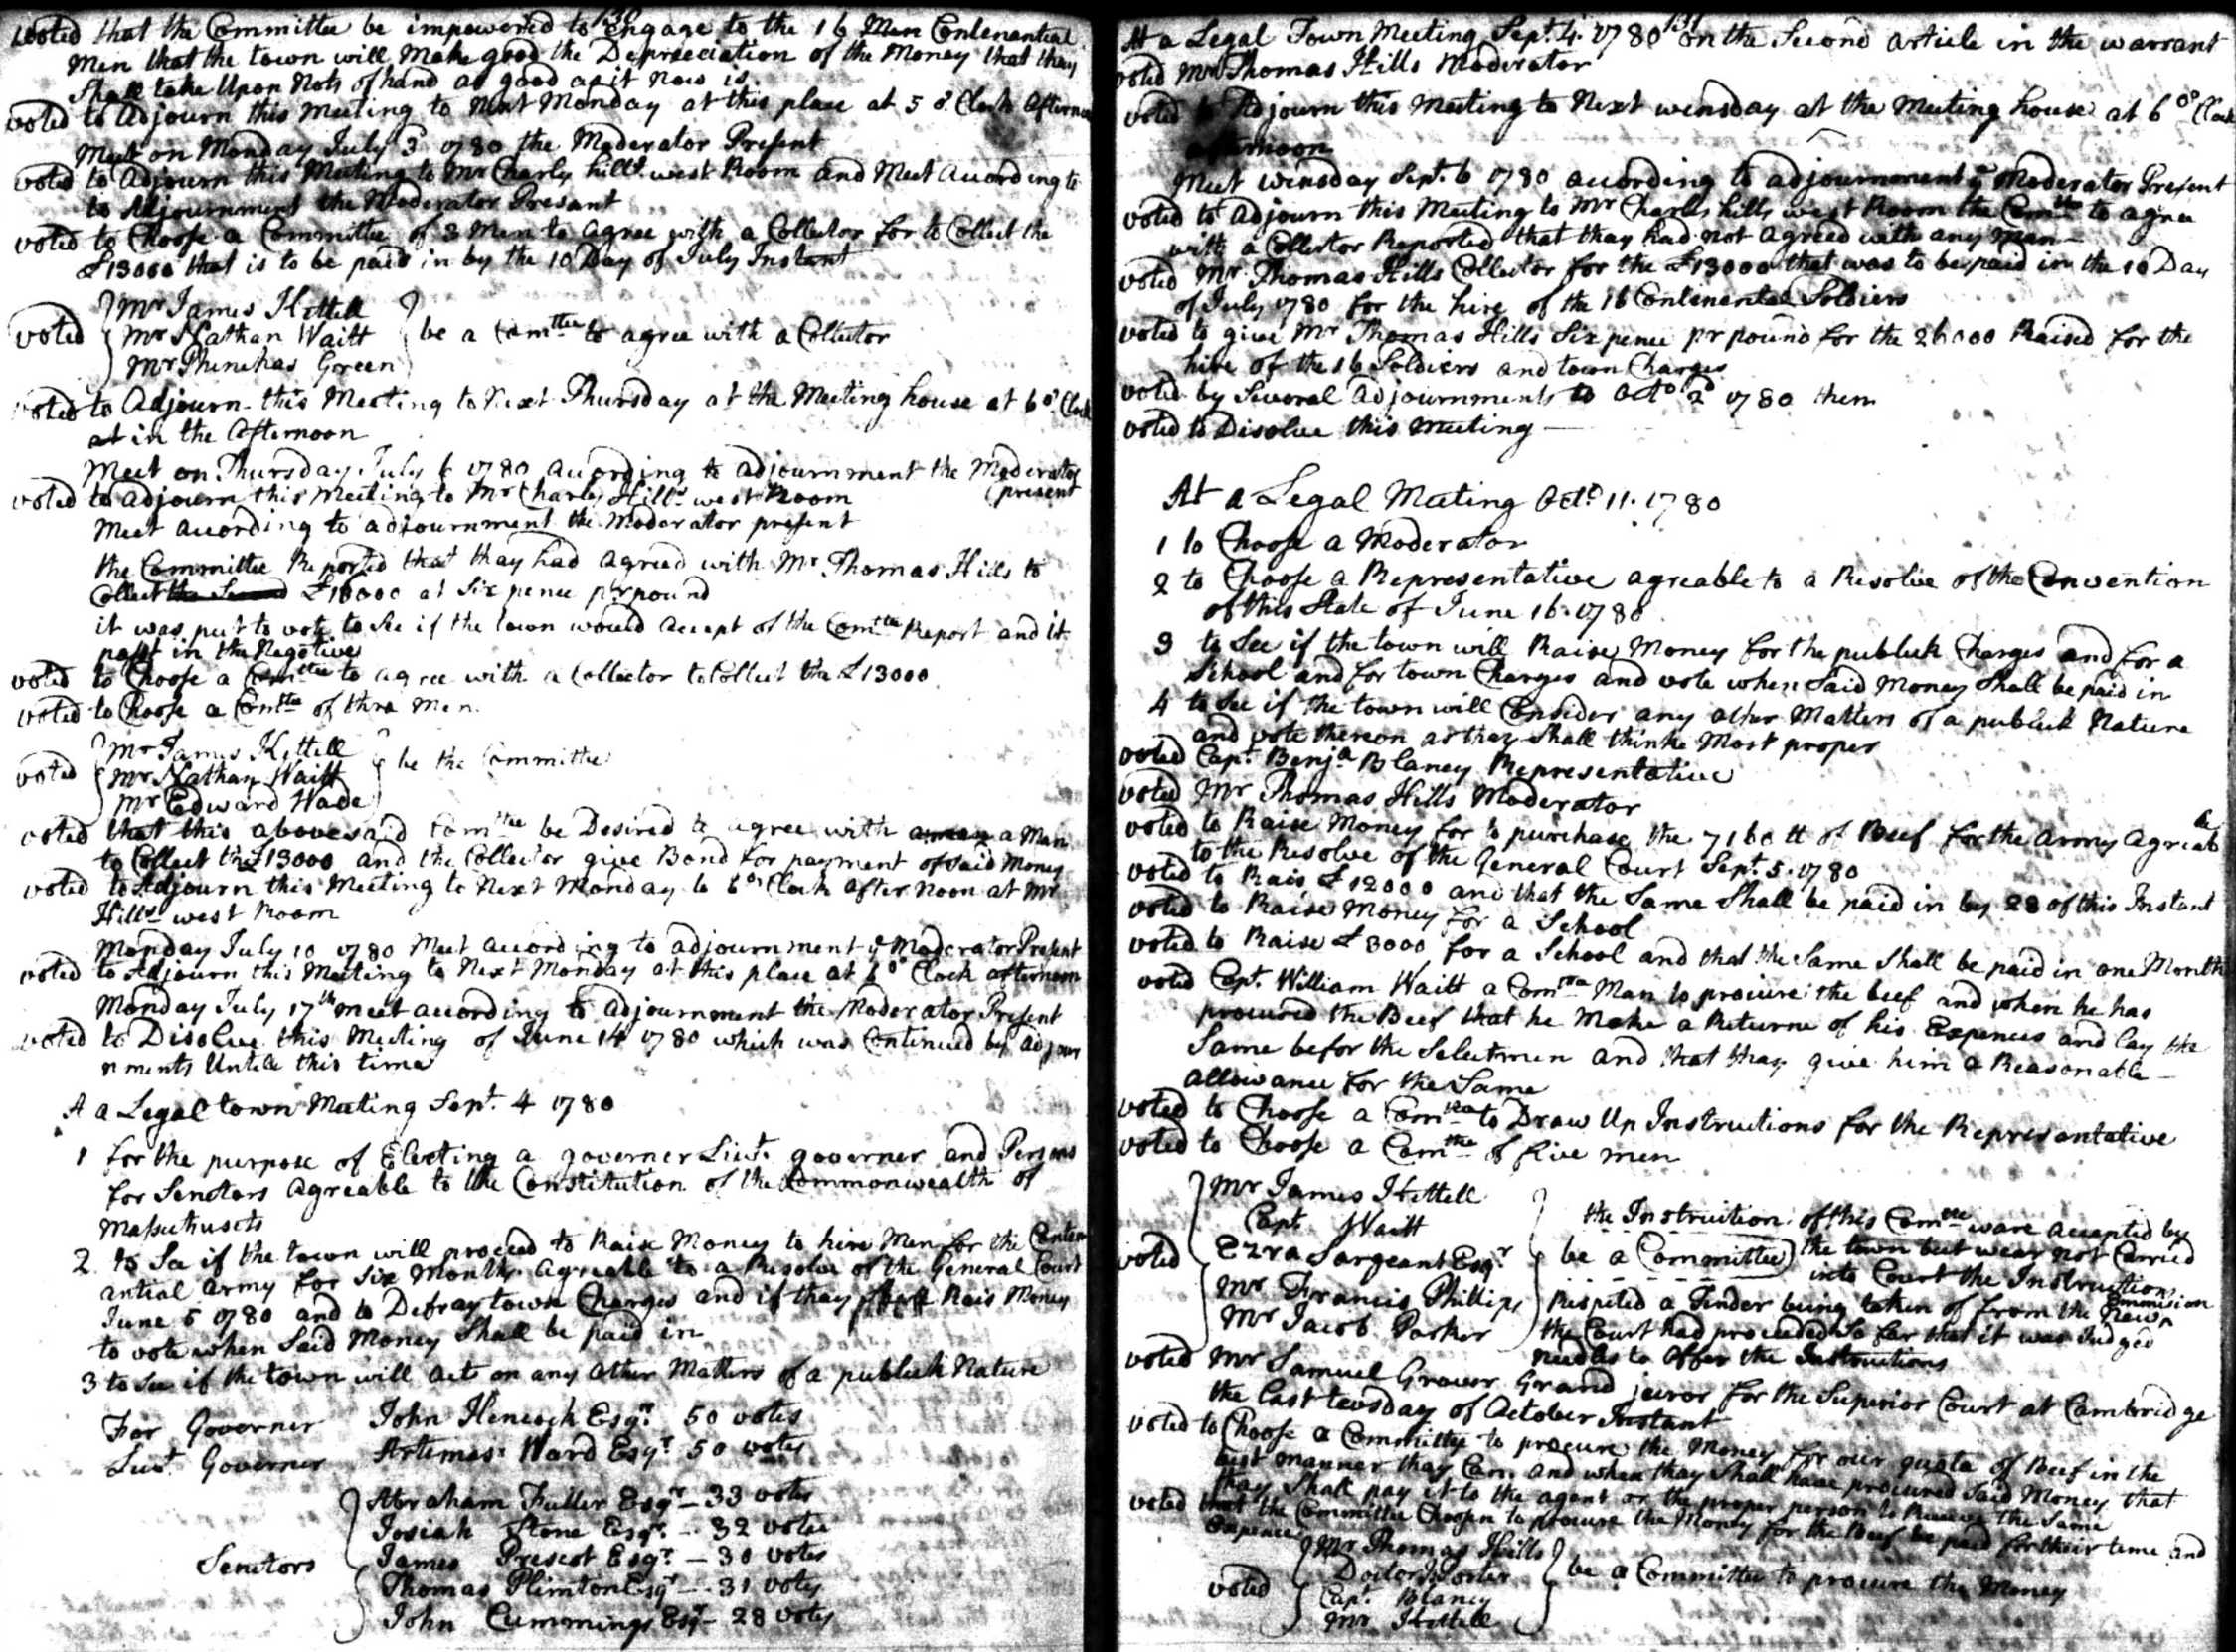 130
voted that the Committee be impowered to Engage to the 16 Men Contenantial
Men that the town will Make good the Depreciation of the Money that thay
Shall take Upon Nots of hand as good as it now is.
voted to adjourn this Meeting to Next Monday at this place at 5 o'Clock Afternoon
Meet on Monday July 3 1780 the Moderator Present
voted to adjourn this Meeting to Mr Charls hills west Room and Meet according to
to Adjournment the Moderator Presant
voted to Choose a Committee of 3 Men to agree with a Collector for to Collect the
£13000 that is to be paid in by the 10 Day of July Instant
Mr James Kettell
voted Mr Nathan Waitt be a Comttee to agree with a Collector
Mr Phinehas Green
voted to Adjourn this Meeting to Next Thursday at the Meeting house at 6 o'Clock
at in the Afternoon
Meet on Thursday July 6 1780 according to adjournment the Moderator
present
voted to adjourn this Meeting to Mr Charls Hills west Room
Meet according to adjournment the Moderator present
the Committee Reported that thay had agreed with Mr Thomas Hills to
Collect the Second £13000 at Six pence pr pound
it was put to vote to See if the town would accept of the Comttee Report and it
past in the Negative
voted to Choose a Comttee to agree with a Collector to Collect the £13000
voted to Choose a Comtte of thre Men.
Mr James Kettell
voted Mr Nathan Waitt be the Committee
Mr Edward Wade
voted that this abovesaid Comttee be Desired to agree with a man a Man
to Collect the £13000 and the Collector give Bond for payment of said Money
voted to Adjourn this Meeting to Next Monday to 6 o'Clock after noon at Mr
Hills west Room
Monday July 10 1780 Meet according to adjournment ye Moderator Present
voted to Adjourn this Meeting to Next Monday at this place at 6 o'Clock afternoon
Monday July 17th meet according to adjournment the Moderator Present
voted to Disolve this Meeting of June 14 1780 which was Continued by adjour
nments Untill this time
At a Legal town Meeting Sept. 4 1780
1 for the purpose of Electing a governer Liut. governer and Persons
for Senetors agreable to the Constitution of the Commonwealth of
Massethusets
2 to See if the town will proceed to Raise Money to hire Men for the Conten
antial army for Six Months agreable to a Resolve of the General Court
June 5 1780 and to Defray town Charges and if thay Shall Rais Money
to vote when Said Money Shall be paid in
3 to See if the town will act on any other Matters of a publick Nature
For Governer John Hencock Esqr. 50 votes
Liut. Governer Artimas Ward Esqr 50 votes
Abraham Fuller Esqr — 33 votes
Josiah Stone Esqr. — 32 votes
Senetors James Prescot Esqr. — 30 votes
Thomas Plimton Esqr — 31 votes
John Cummings Esqr — 28 votes
131
At a Legal Town Meeting Sept. 4. 1780 on the Second article in the warrant
voted Mr Thomas Hills Moderator
voted to Adjourn this Meeting to Next winsday at the Meeting house at 6 o'Clock
afternoon
Meet winsday Sept. 6 1780 according to adjournment ye Moderator Present
voted to adjourn this Meeting to Mr Charles hills west Room the Comtte to agree
with a Collector Reported that thay had not agreed with any Man —
voted Mr. Thomas Hills Collector for the £13000 that was to be paid in the 10 Day
of July 1780 for the hire of the 16 Contenental Soldiers
voted to give Mr Thomas Hills Six pence pr pound for the 26000 Raised for the
hire of the 16 Soldiers and town Charges
voted by Several adjournments to Octo. 2d 1780 then
voted to Disolve this Meeting —
At a Legal Meeting Octo. 11. 1780
1 to Choose a Moderator
2 to Choose a Representative agreable to a Resolve of the Convention
of this State of June 16. 1780
3 to See if the town will Raise Money for the publick Charges and for a
School and for town Charges and vote when Said Money Shall be paid in
4 to See if the town will Consider any other Matters of a publick Nature
and vote thereon as thay Shall thinke Most proper
voted Capt. Benja Blaney Representative
voted Mr Thomas Hills Moderator
voted to Raise Money for to purchase the 7160 tt of Beef for the army agreable
to the Resolve of the General Court Sept. 5. 1780
voted to Rais £12000 and that the Same Shall be paid in by 28 of this Instant
voted to Raise Money for a School
voted to Raise £3000 for a School and that the Same Shall be paid in one Month
voted Capt. William Waitt a Comtte Man to procure the beef and when he has
procured the Beef that he Make a Returne of his Expences and lay the
Same befor the Selectmen and that thay give him a Reasonable —
allowance for the Same
voted to Choose a Comtte to Draw Up Instructions for the Representative
voted to Choose a Comtte of five men
Mr James Kettell
Capt Waitt
voted Ezra Sargeant Esqr be a Committee
Mr Francis Phillips
Mr Jacob Parker
the Instruction of this Comtte ware accepted by
the town but wear not Carried
into Court the Instruction
Respited a Tinder being taken of from the New Emmision
the Court had proceeded So far that it was Judged
needles to offer the Instructions
voted Mr Samuel Grover Grand juror for the Superior Court at Cambridge
the Last tewsday of October Instant
voted to Choose a Committee to procure the Money for our quota of Beef in the
best manner thay Can and when thay Shall have procured Said Money that
thay Shall pay it to the agent or the proper person to Receive the Same
voted that the Committee Choosen to procure the Money for the Beef be paid for their time and
Expences
Mr Thomas Hills
Doctor Porter
voted Capt. Blaney be a Committee to procure the Money
Mr Kettell